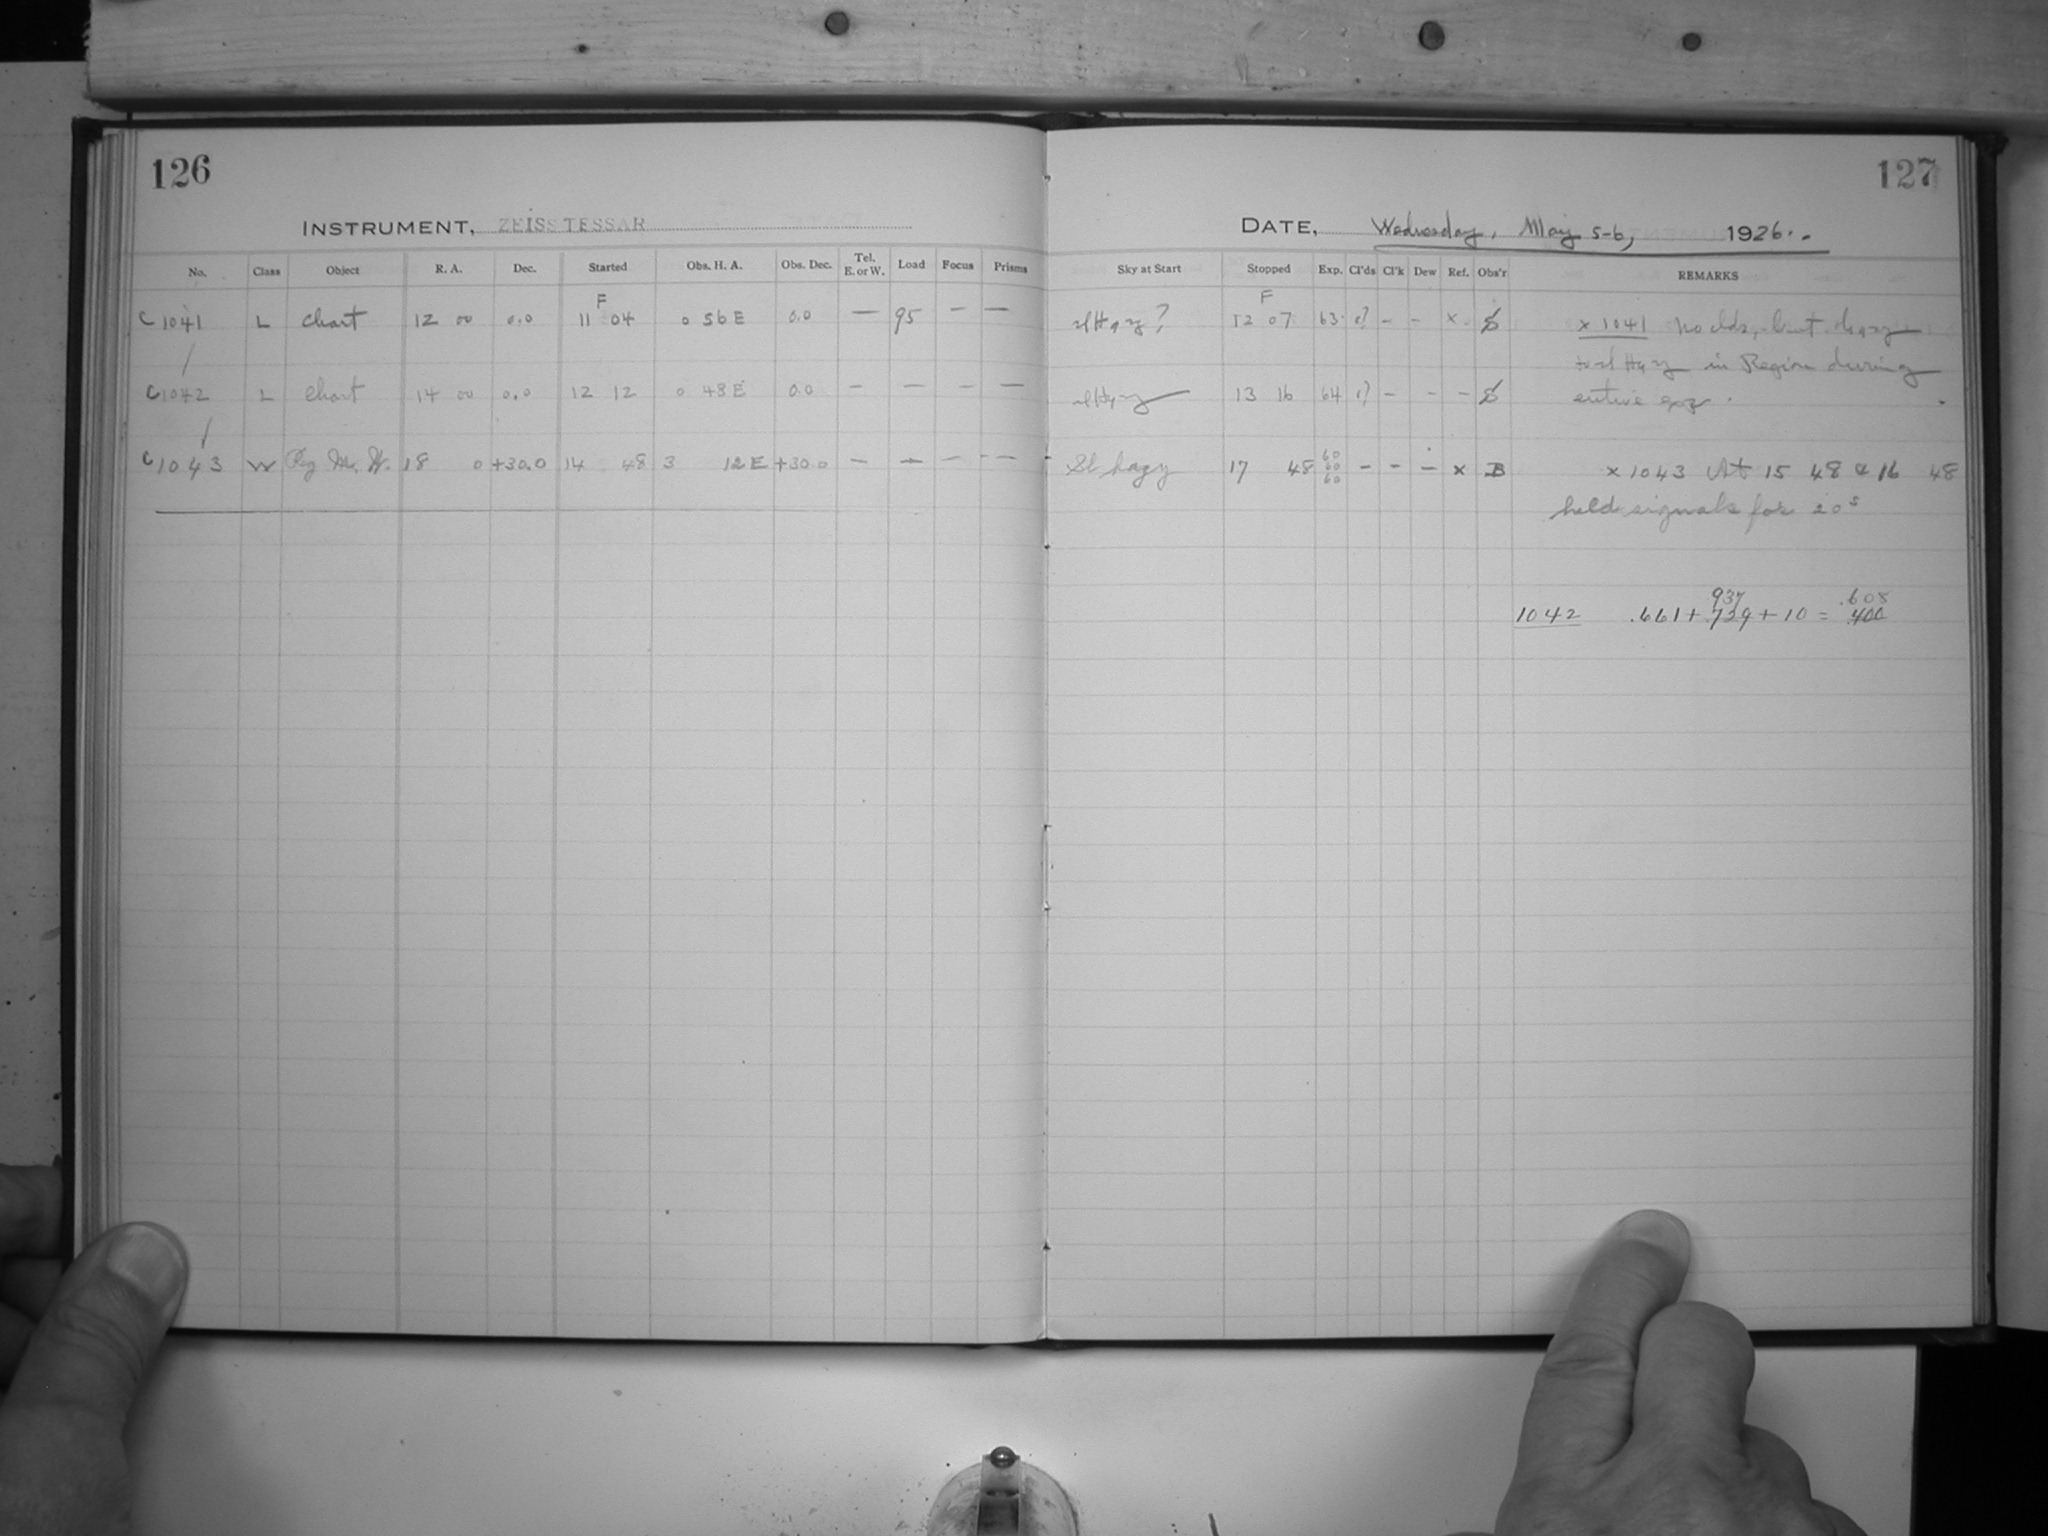 126
127
INSTRUMENT, ZEISS TESSAR
DATE, Wednesday, May 5-6, 1926.
No. Class Object R. A. Dec. Started Obs. H. A. Obs. Dec. Tel. E. or W. Load Focus Prisms Sky at Start Stopped Exp. Cl'ds Cl'k Dew Ref. Obs'r REMARKS
F F
C 1041 L Chart 12 00 0.0 11 04 0 56 E 0.0 — 95 — — slHazy? 12 07 63 0? - - x x 1041 No clds, but
in Region during
C 1042 L Chart 14 00 0.0 12 12 0 48 E 0.0 — — — — slHazy 13 16 64 0? - - - entire exp.
C 1043 W Reg M. W. 18 0 +30.0 14 48 3 12 E +30.0 — — — — Sl hazy 17 48 60 60 60 - - - x B x 1043 At 15 48 & 16 48
held signals for 20s
937 .608
1042 .661 + .739 + 10 = .400